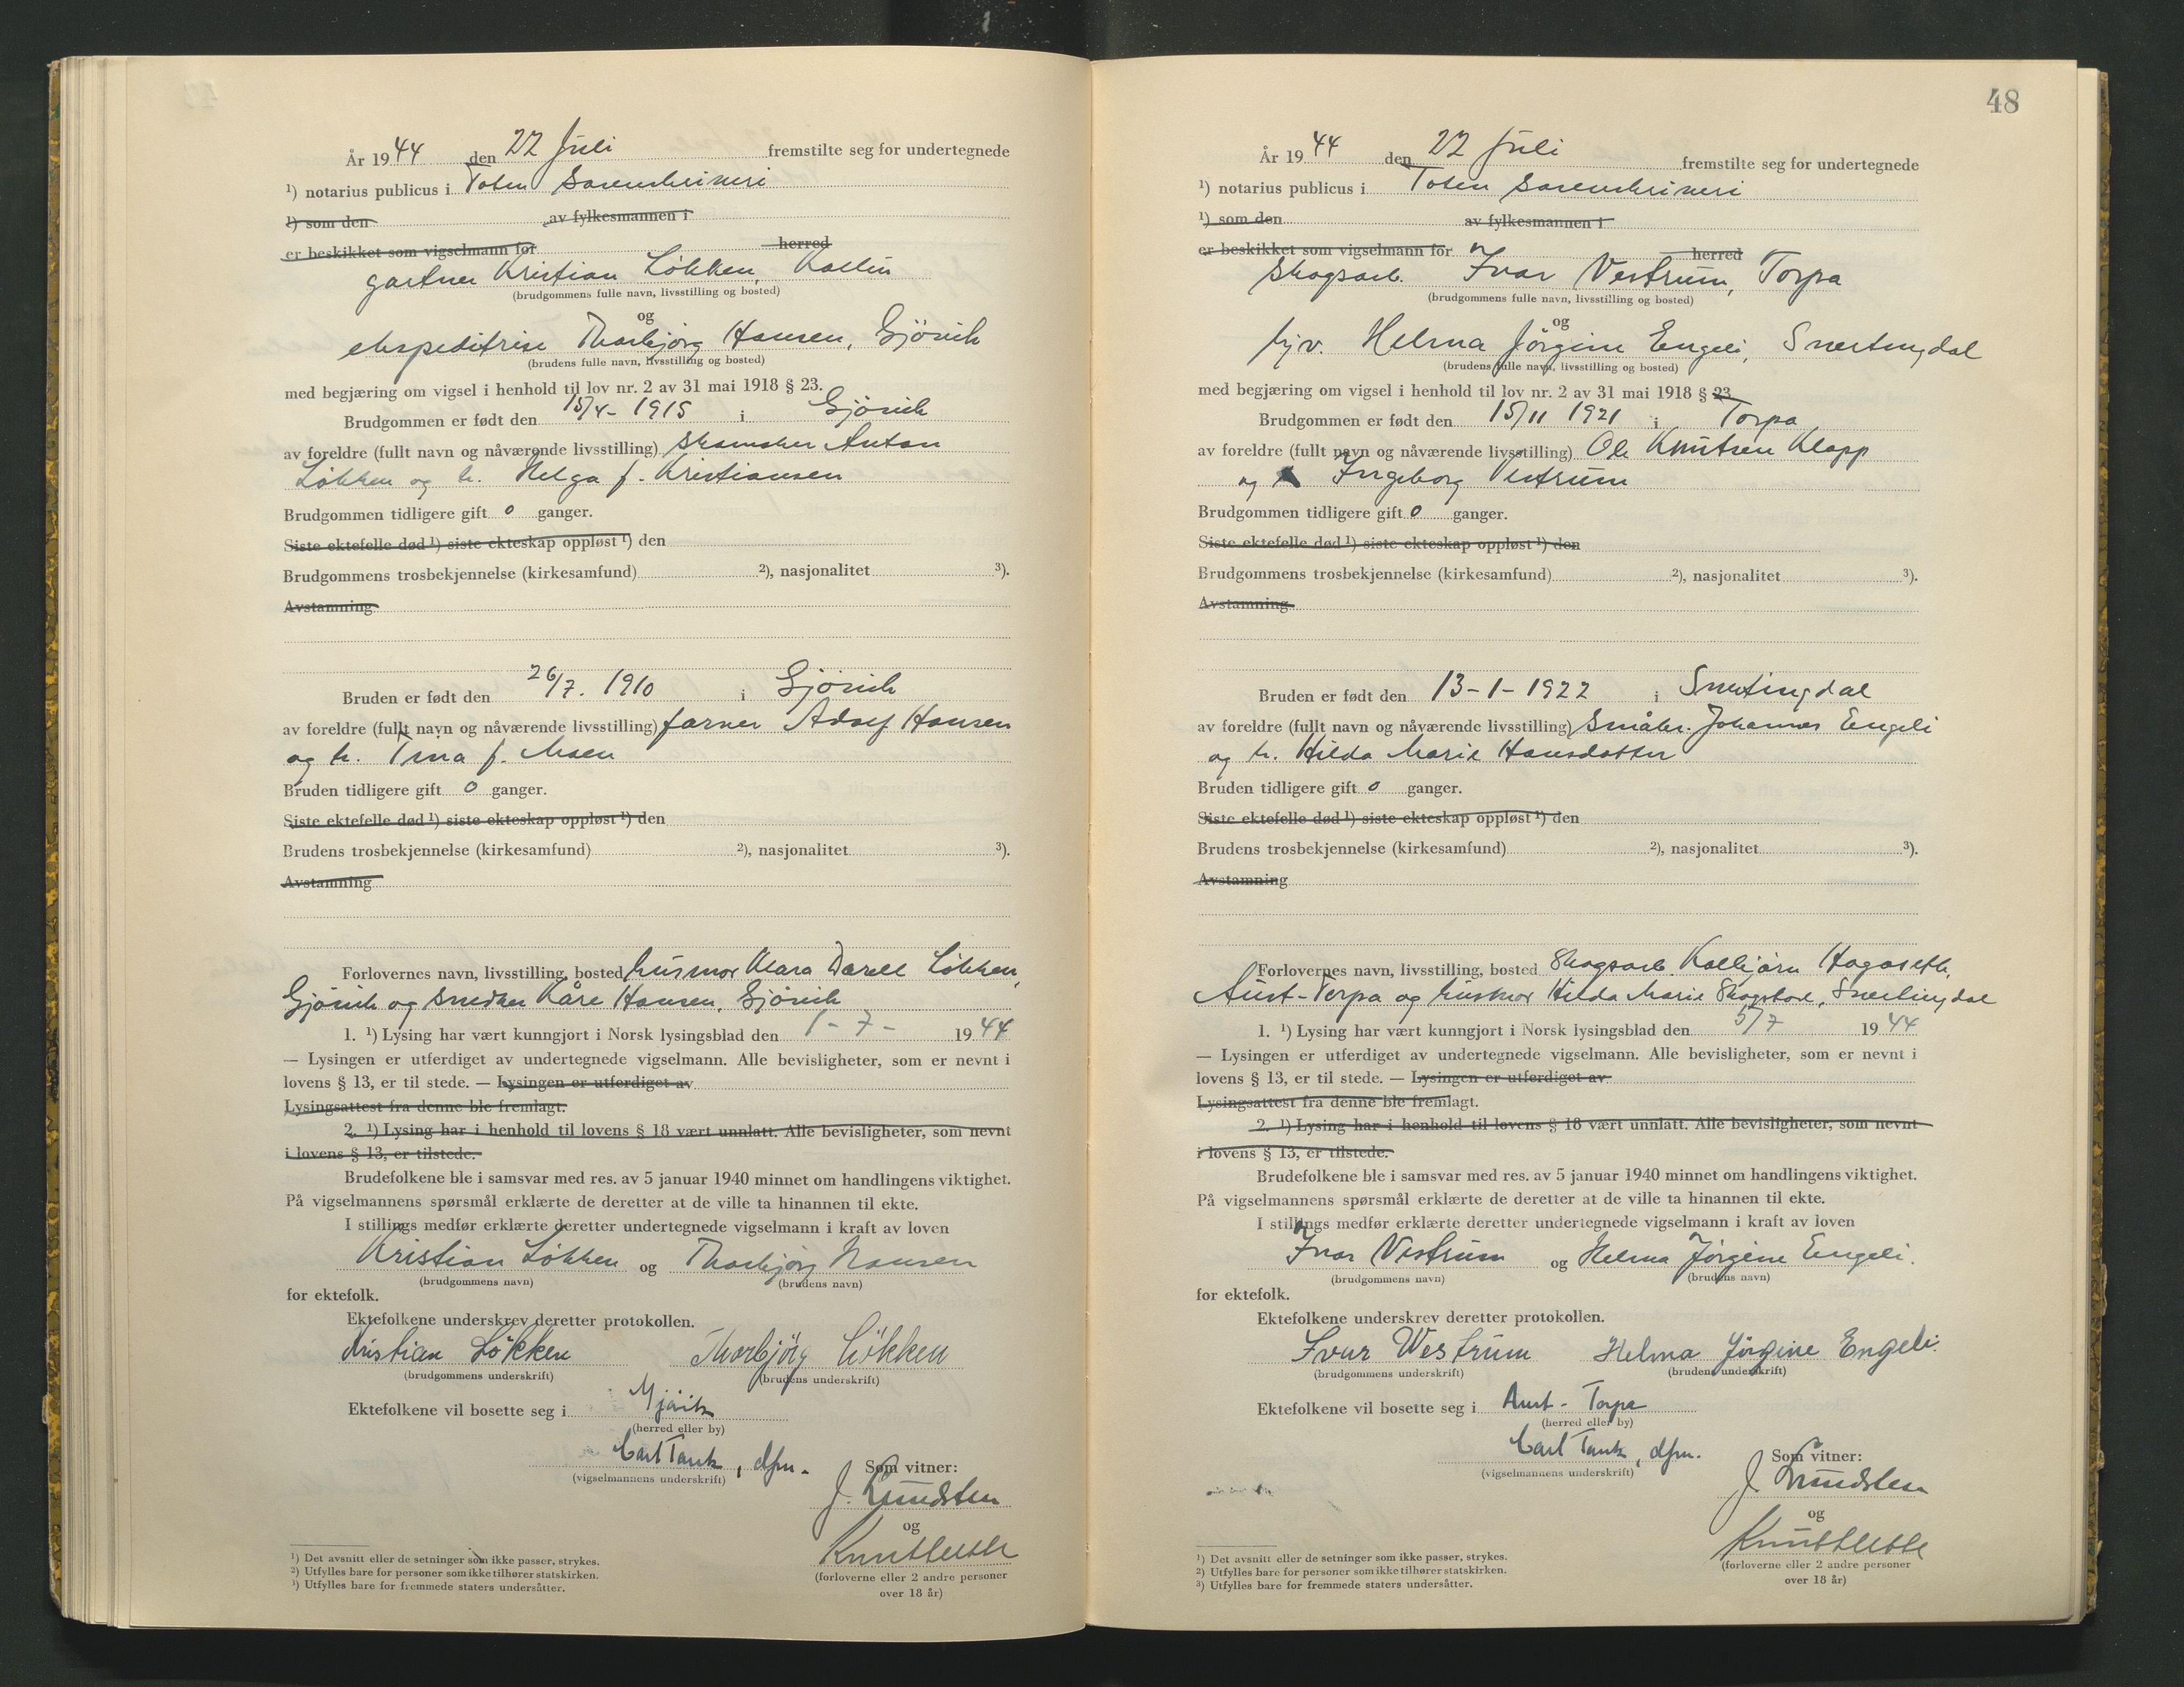 År 1944 den 22 Juli fremstilte seg for undertegnede
¹) notarius publicus i Toten Sorenskriveri
¹) som den av fylkesmannen i
er beskikket som vigselmann for herred
gartner Kristian Løkken, Kallen
(brudgommens fulle navn, livsstilling og bosted)
og
ekspeditrise Thorbjörg Hansen, Gjövik
(brudens fulle navn, livsstilling og bosted)
med begjæring om vigsel i henhold til lov nr. 2 av 31 mai 1918 § 23.
Brudgommen er født den 15/4- 1915 i Gjövik
av foreldre (fullt navn og nåværende livsstilling) skomaker Anton
Løkken og h. Helga f. Kristiansen
Brudgommen tidligere gift 0 ganger.
Siste ektefelle død ¹) siste ekteskap oppløst ¹) den
Brudgommens trosbekjennelse (kirkesamfund) ²), nasjonalitet ³).
Avstamning
Bruden er født den 26/7. 1910 i Gjövik
av foreldre (fullt navn og nåværende livsstilling) farver Adolf Hansen
og h. Tina f. Moen
Bruden tidligere gift 0 ganger.
Siste ektefelle død ¹) siste ekteskap oppløst ¹) den
Brudens trosbekjennelse (kirkesamfund) ²), nasjonalitet ³).
Avstamning
Forlovernes navn, livsstilling, bosted husmor Klara Løkken,
Gjövik og snedker Kåre Hansen, Gjövik
1. ¹) Lysing har vært kunngjort i Norsk lysingsblad den 1-7- 1944
— Lysingen er utferdiget av undertegnede vigselmann. Alle bevisligheter, som er nevnt i
lovens § 13, er til stede. — Lysingen er utferdiget av
Lysingsattest fra denne ble fremlagt.
2. ¹) Lysing har i henhold til lovens § 18 vært unnlatt. Alle bevisligheter, som nevnt
i lovens § 13, er tilstede.
Brudefolkene ble i samsvar med res. av 5 januar 1940 minnet om handlingens viktighet.
På vigselmannens spørsmål erklærte de deretter at de ville ta hinannen til ekte.
I stillings medfør erklærte deretter undertegnede vigselmann i kraft av loven
Kristian Løkken og Thorbjörg Hansen
(brudgommens navn) (brudens navn)
for ektefolk.
Ektefolkene underskrev deretter protokollen.
Kristian Løkken Thorbjörg Løkken
(brudgommens underskrift) (brudens underskrift)
Ektefolkene vil bosette seg i Gjövik
(herred eller by)
Carl Tank, dfm.
(vigselmannens underskrift)
Som vitner:
J. Lundsten
og
Knut Lette
(forloverne eller 2 andre personer
over 18 år)
¹) Det avsnitt eller de setninger som ikke passer, strykes.
²) Utfylles bare for personer som ikke tilhører statskirken.
³) Utfylles bare for fremmede staters undersåtter.
48
År 1944 den 22 Juli fremstilte seg for undertegnede
¹) notarius publicus i Toten Sorenskriveri
¹) som den av fylkesmannen i
er beskikket som vigselmann for herred
skogsarb. Ivar Vestrum, Torpa
(brudgommens fulle navn, livsstilling og bosted)
og
hjv. Helma Jörgine Engeli, Snertingdal
(brudens fulle navn, livsstilling og bosted)
med begjæring om vigsel i henhold til lov nr. 2 av 31 mai 1918 § 23.
Brudgommen er født den 15/11 1921 i Torpa
av foreldre (fullt navn og nåværende livsstilling) Ole Knutsen Klapp
og Ingeborg Vestrum
Brudgommen tidligere gift 0 ganger.
Siste ektefelle død ¹) siste ekteskap oppløst ¹) den
Brudgommens trosbekjennelse (kirkesamfund) ²), nasjonalitet ³).
Avstamning
Bruden er født den 13-1-1922 i Snertingdal
av foreldre (fullt navn og nåværende livsstilling) Småbr. Johannes Engeli
og h. Hilda Marie Hansdatter
Bruden tidligere gift 0 ganger.
Siste ektefelle død ¹) siste ekteskap oppløst ¹) den
Brudens trosbekjennelse (kirkesamfund) ²), nasjonalitet ³).
Avstamning
Forlovernes navn, livsstilling, bosted Skogsarb. Kolbjørn Hagaseth,
Aust-Torpa og husmor Hilda Marie Skogstad, Snertingdal
1. ¹) Lysing har vært kunngjort i Norsk lysingsblad den 5/7 1944
— Lysingen er utferdiget av undertegnede vigselmann. Alle bevisligheter, som er nevnt i
lovens § 13, er til stede. — Lysingen er utferdiget av
Lysingsattest fra denne ble fremlagt.
2. ¹) Lysing har i henhold til lovens § 18 vært unnlatt. Alle bevisligheter, som nevnt
i lovens § 13, er tilstede.
Brudefolkene ble i samsvar med res. av 5 januar 1940 minnet om handlingens viktighet.
På vigselmannens spørsmål erklærte de deretter at de ville ta hinannen til ekte.
I stillings medfør erklærte deretter undertegnede vigselmann i kraft av loven
Ivar Vestrum og Helma Jörgine Engeli.
(brudgommens navn) (brudens navn)
for ektefolk.
Ektefolkene underskrev deretter protokollen.
Ivar Westrum Helma Jörgine Engeli.
(brudgommens underskrift) (brudens underskrift)
Ektefolkene vil bosette seg i Aust-Torpa
(herred eller by)
Carl Tank, dfm.
(vigselmannens underskrift)
Som vitner:
J. Lundsten
og
Knut Lette
(forloverne eller 2 andre personer
over 18 år)
¹) Det avsnitt eller de setninger som ikke passer, strykes.
²) Utfylles bare for personer som ikke tilhører statskirken.
³) Utfylles bare for fremmede staters undersåtter.